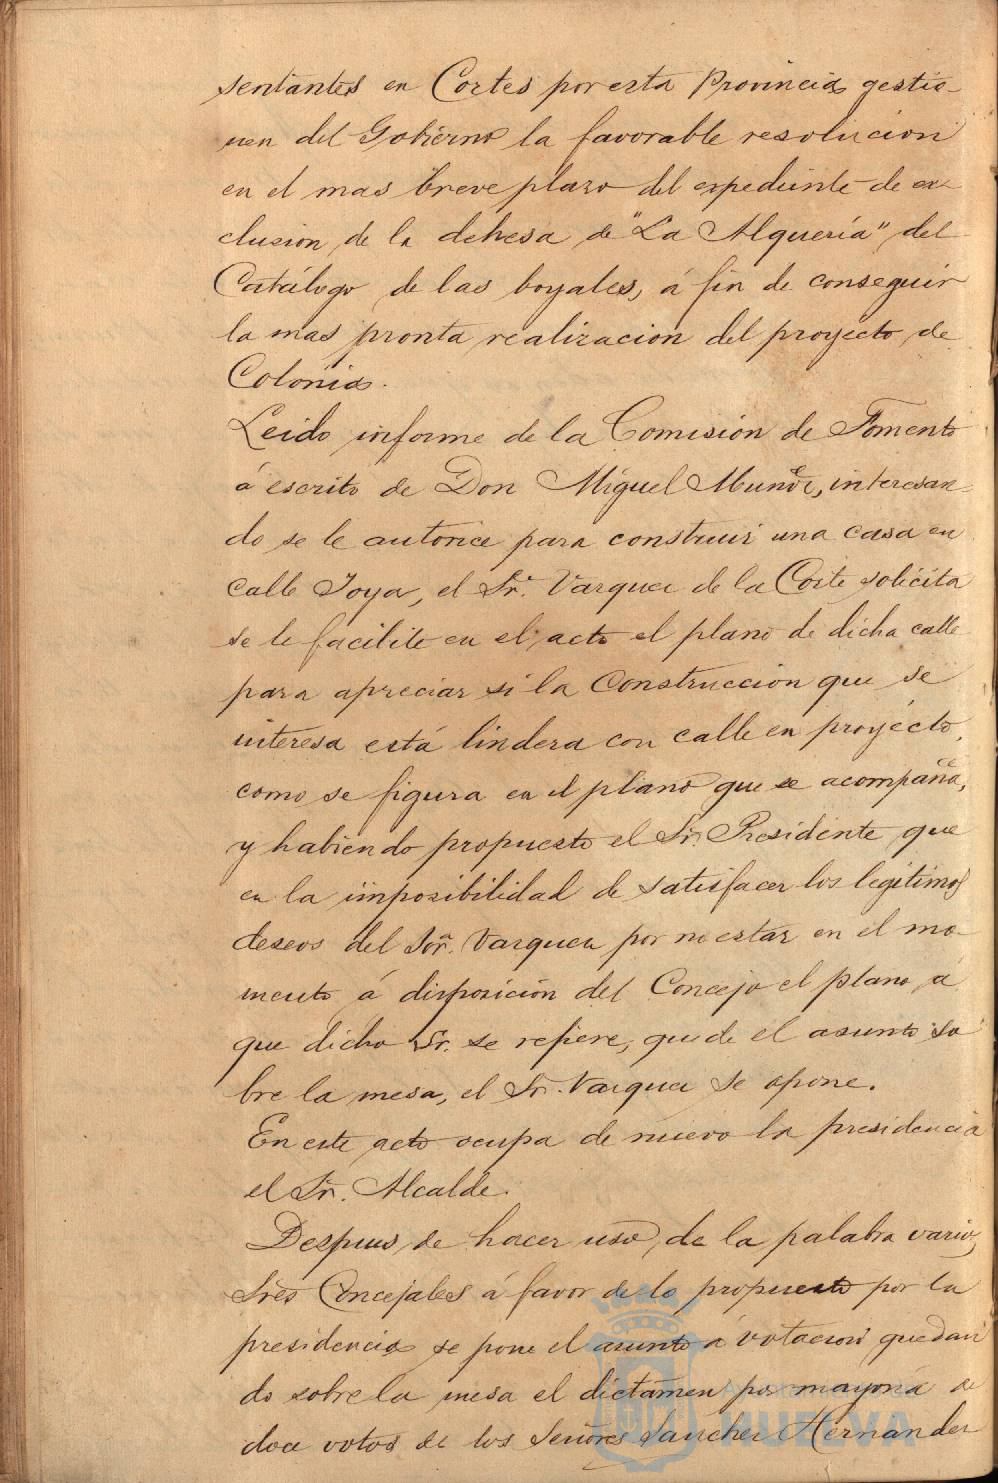 sentantes en Cortes por esta Provincia gestio-
nen del Gobierno la favorable resolucion
en el mas breve plazo del expediente de ex-
clusion de la dehesa de "La Alquería" del
Catálogo de las boyales, á fin de conseguir
la mas pronta realizacion del proyecto de
Colonia.
Leido informe de la Comisión de Fomento
á escrito de Don Miguel Muñoz, interesan-
do se le autorice para construir una casa en
calle Joya, el Sr. Vazquez de la Corte solicita
se le facilite en el acto el plano de dicha calle
para apreciar si la Construccion que se
interesa está lindera con calle en proyécto,
como se figura en el plano que se acompaña,
y habiendo propuesto el Sr. Presidente que
en la imposibilidad de satisfacer los legitimos
deseos del Sor. Vazquez por no estar en el mo-
mento á disposición del Concejo el plano á
que dicho Sr. se refiere, quede el asunto so
bre la mesa, el Sr. Vazquez se opone.
En este acto ocupa de nuevo la presidencia
el Sr. Alcalde.
Despues de hacer uso de la palabra varios
Sres Concejales á favor de lo propuesto por la
presidencia se pone el asunto á votacion quedan
do sobre la mesa el dictámen por mayoria de
doce votos de los Señores Sanchez Hernandez
HUELVA